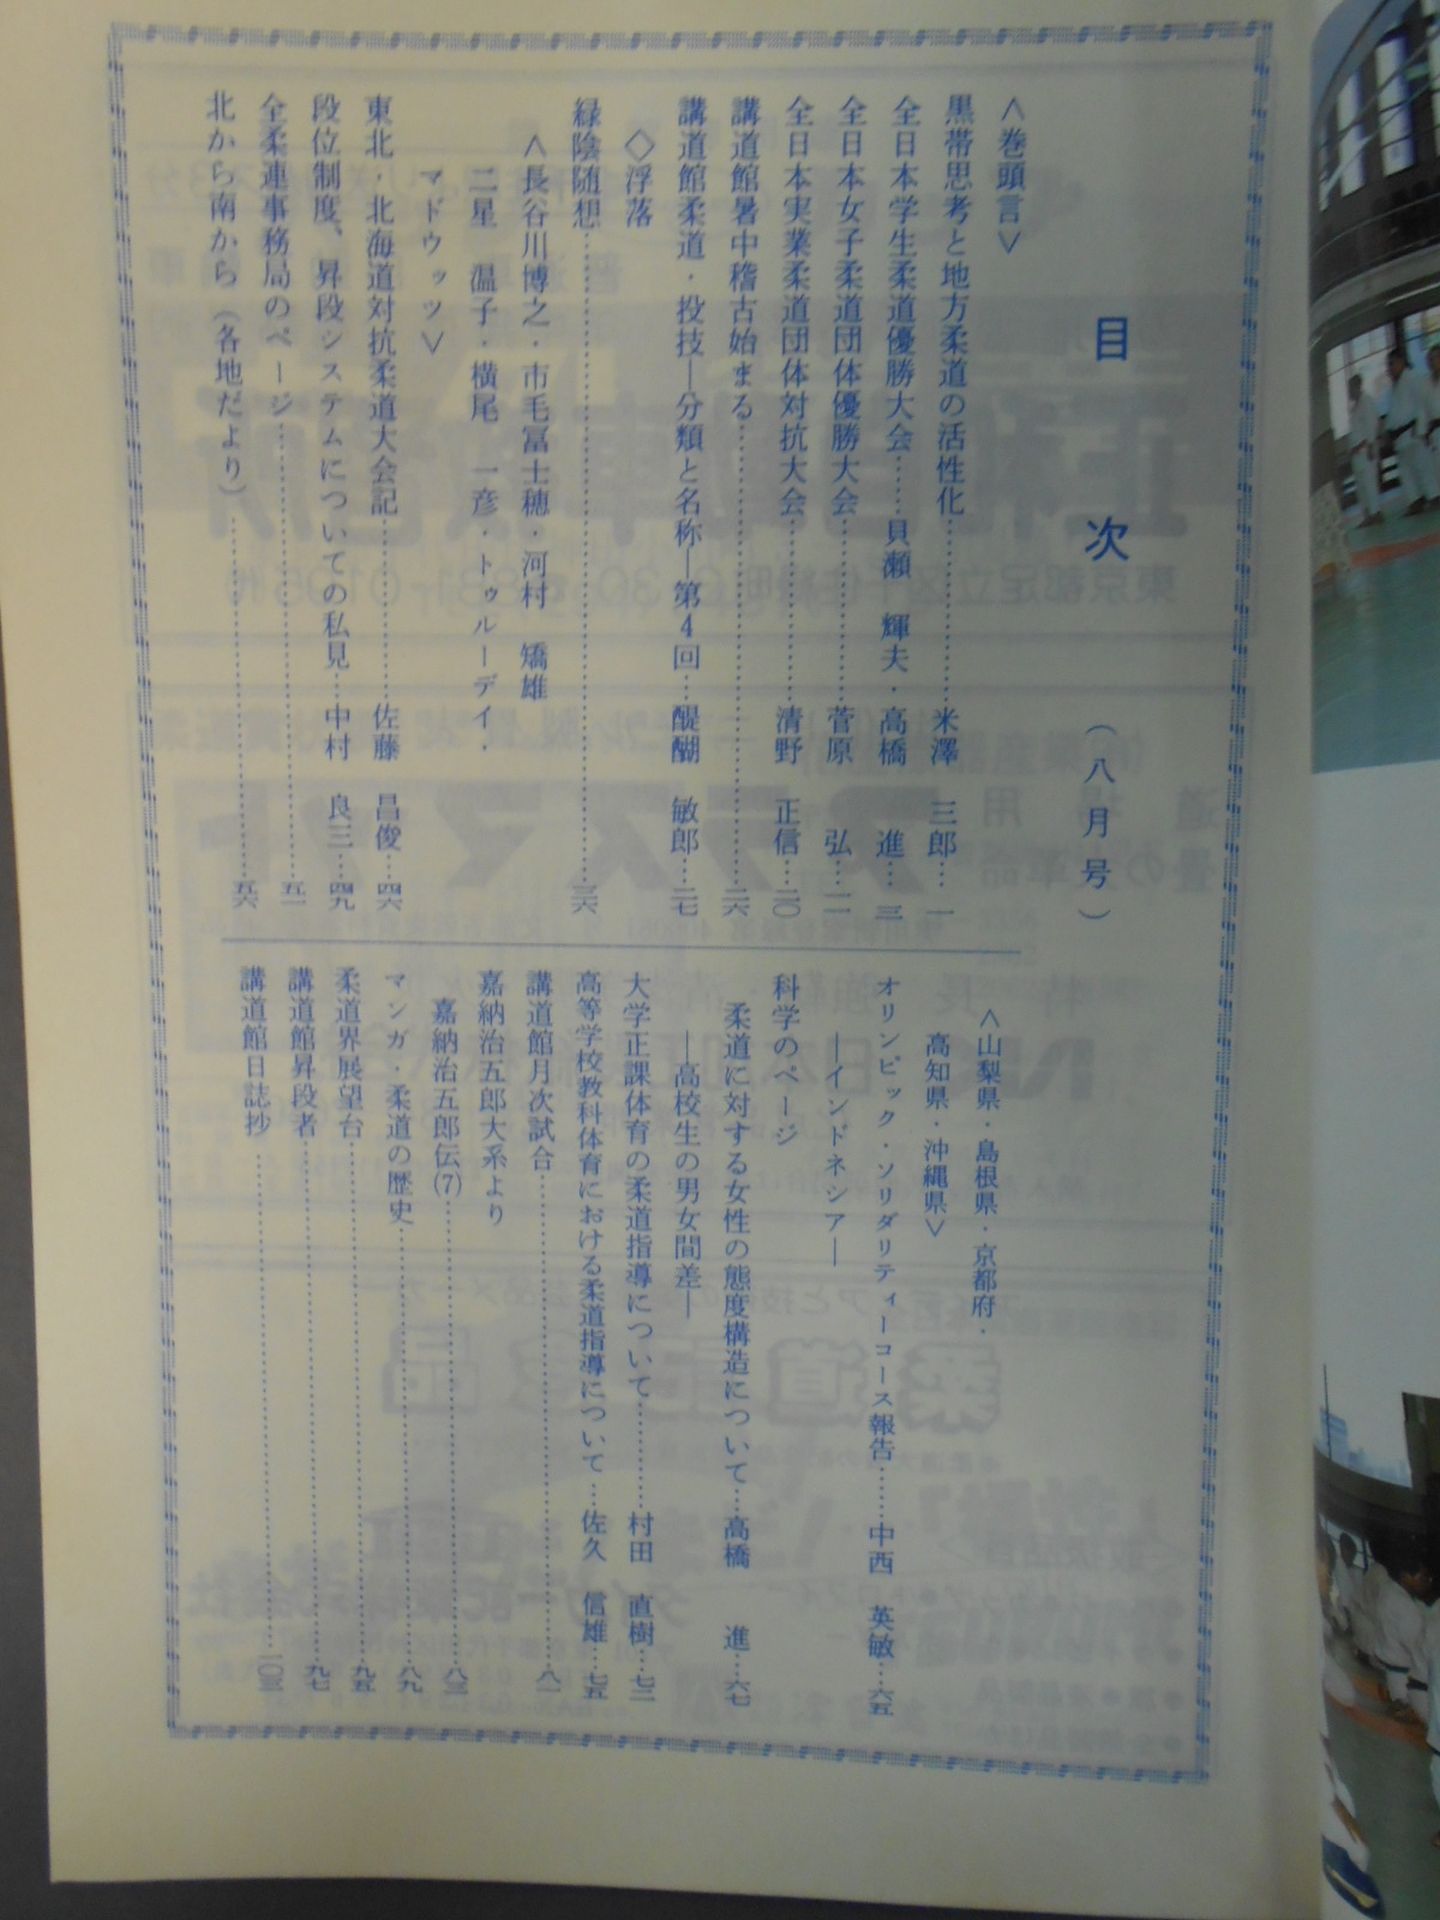 目次
（八月号）
＜巻頭言＞
黒帯思考と地方柔道の活性化……米澤　三郎…一
全日本学生柔道優勝大会……貝瀬　輝夫・高橋　進…三
全日本女子柔道団体優勝大会……菅原　弘…一一
全日本実業柔道団体対抗大会……清野　正信…二〇
講道館暑中稽古始まる……二六
講道館柔道・投技―分類と名称―第4回…醍醐　敏郎…二七
◇浮落
緑陰随想……三六
＜長谷川博之・市毛冨士穂・河村　矯雄
二星　温子・横尾　一彦・トゥルーデイ・
マドウッツ＞
東北・北海道対抗柔道大会記……佐藤　昌俊…四六
段位制度、昇段システムについての私見…中村　良三…四九
全柔連事務局のページ……五一
北から南から（各地だより）……五六
＜山梨県・島根県・京都府・
高知県・沖縄県＞
オリンピック・ソリダリティーコース報告……中西　英敏…六五
―インドネシア―
科学のページ
柔道に対する女性の態度構造について…高橋　進…六七
―高校生の男女間差―
大学正課体育の柔道指導について……村田　直樹…七二
高等学校教科体育における柔道指導について…佐久　信雄…七五
講道館月次試合……八一
嘉納治五郎大系より
嘉納治五郎伝(7)……八三
マンガ・柔道の歴史……八九
柔道界展望台……九五
講道館昇段者……九七
講道館日誌抄……一〇三